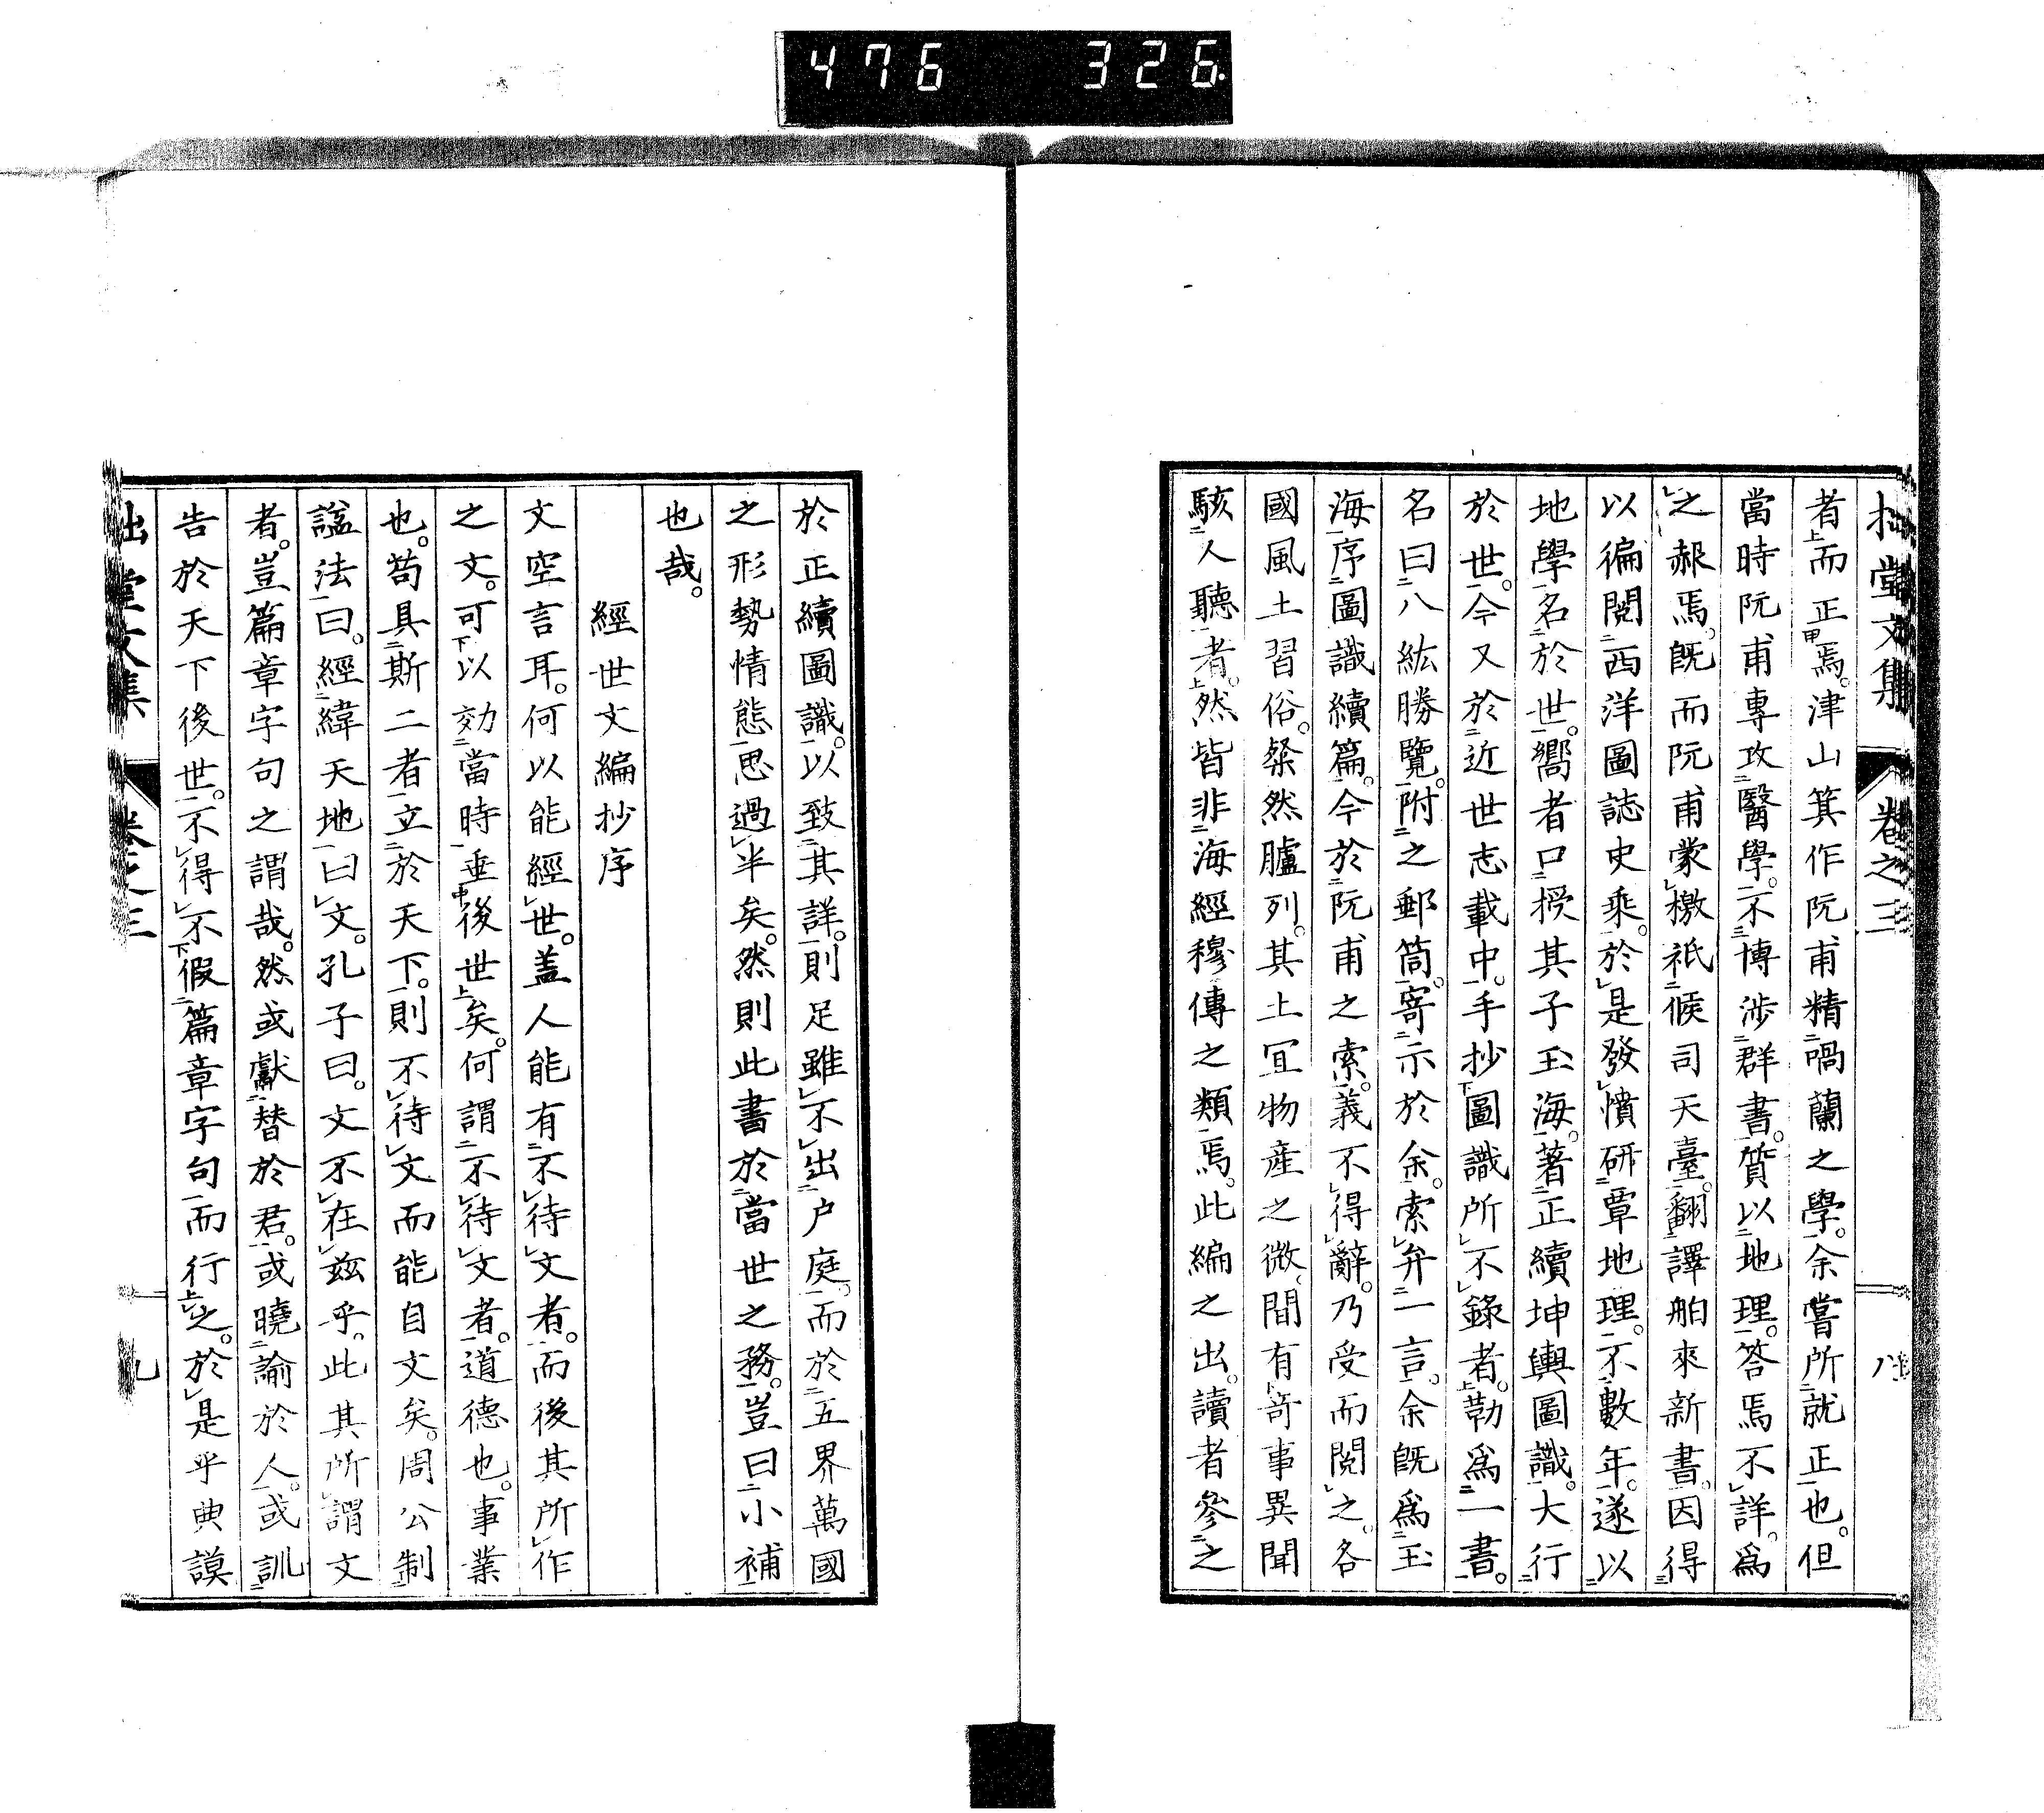 476 326
拙堂文集 卷之三 八
者而正焉。津山箕作阮甫精喎蘭之學。余嘗所就正也。但
當時阮甫專攻醫學。不博涉群書。質以地理。答焉不詳。爲
之赧焉。既而阮甫蒙檄祇候司天臺。翻譯舶來新書。因得
以徧閱西洋圖誌史乘。於是發憤研覃地理。不數年。遂以
地學名於世。嚮者口授其子玉海。著正續坤輿圖識。大行
於世。今又於近世志載中。手抄圖識所不錄者。勒爲一書。
名曰八紘勝覽。附之郵筒。寄示於余。索弁一言。余既爲玉
海序圖識續篇。今於阮甫之索。義不得辭。乃受而閱之。各
國風土習俗。粲然臚列。其土宜物產之微、間有竒事異聞
駭人聽者。然皆非海經穆傳之類焉。此編之出。讀者參之
於正續圖識。以致其詳。則足雖不出户庭。而於五界萬國
之形勢情態思過半矣。然則此書於當世之務。豈曰小補
也哉。
經世文編抄序
文空言耳。何以能經世。盖人能有不待文者。而後其所作
之文。可以効當時垂後世矣。何謂不待文者。道德也。事業
也。苟具斯二者立於天下。則不待文而能自文矣。周公制
諡法曰。經緯天地曰文。孔子曰。文不在茲乎。此其所謂文
者。豈篇章字句之謂哉。然或獻替於君。或曉諭於人。或訓
告於天下後世。不得不假篇章字句而行之。於是乎典謨
拙堂文集 卷之三 九